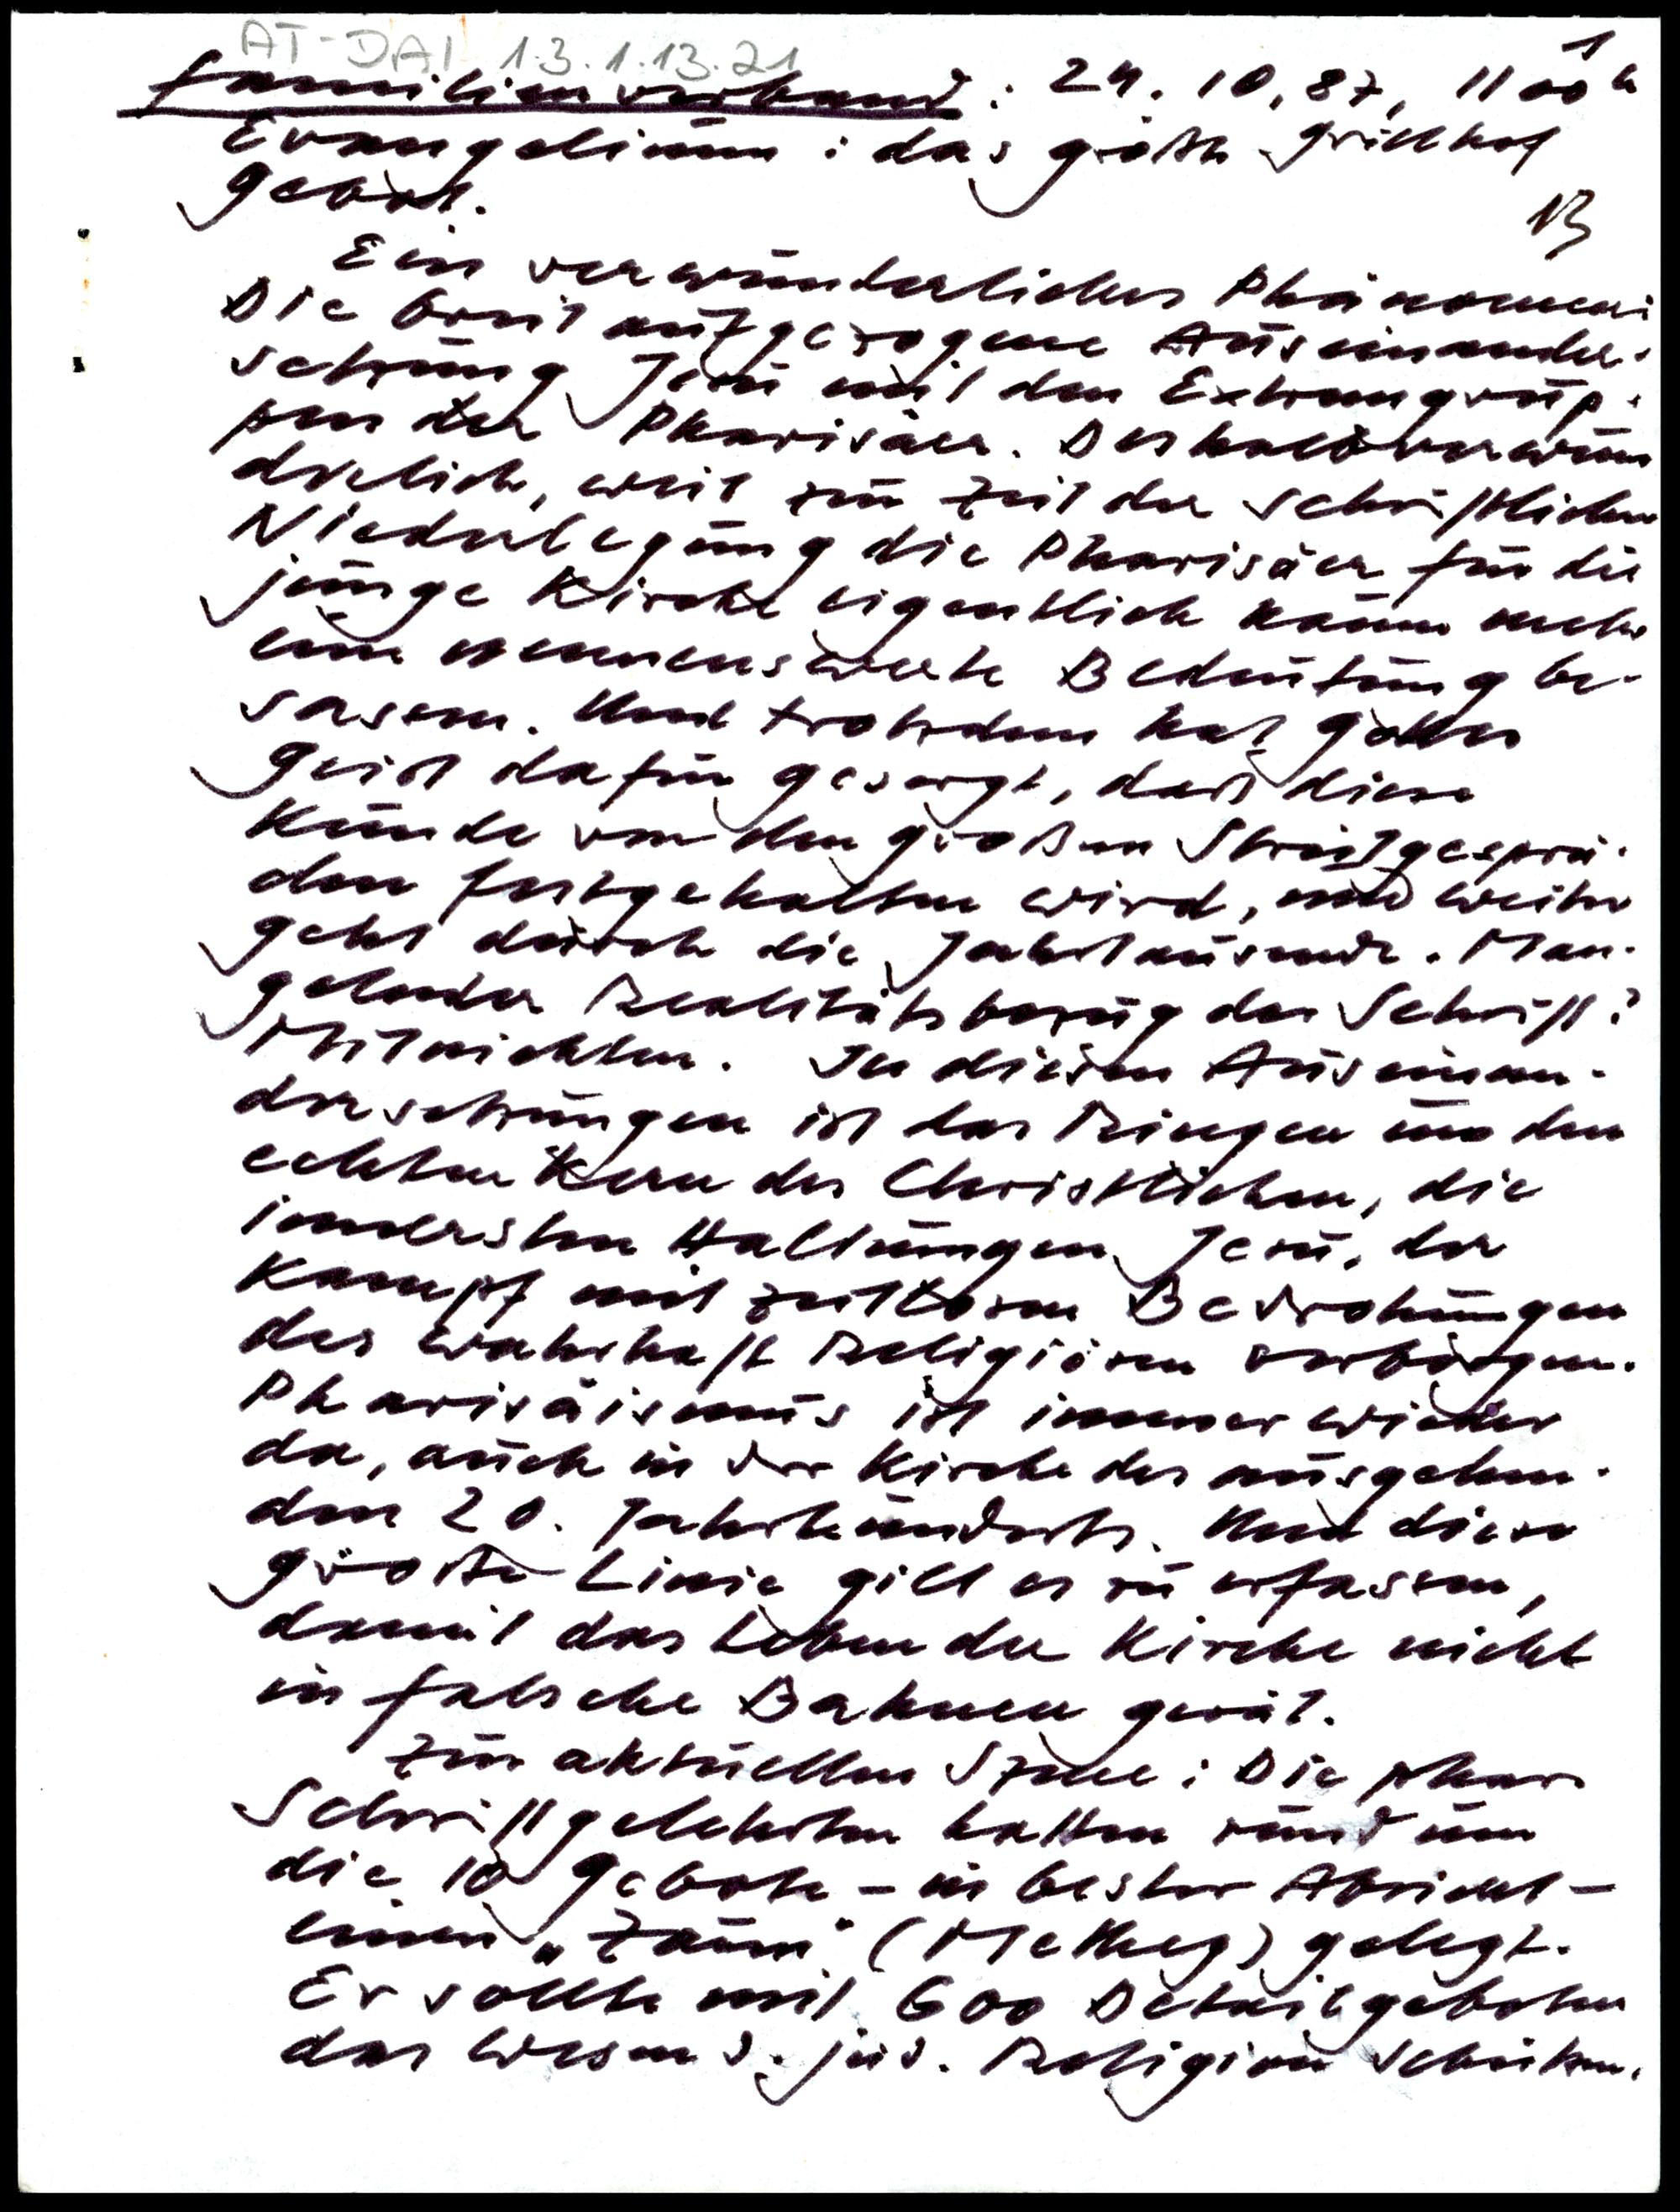 AT-DAI 1.3.1.13.21
1
Familienverband: 24.10.87, 11 00 h
Evangelium: das größte Grillhof
Gebot.
13
Ein verwunderliches Phänomen:
Die breit aufgezogene Auseinander-
setzung Jesu mit den Extremgrup-
pen der Pharisäer. Deshalb verwun
derlich, weil zur Zeit der schriftlichen
Niederlegung die Pharisäer für die
junge Kirche eigentlich kaum mehr
eine nennenswerte Bedeutung be-
sasen. Und trotzdem hat Gottes
Geist dafür gesorgt, daß diese
Kunde von den großen Streitgesprä-
chen festgehalten wird, und weiter
geht durch die Jahrtausende. Man-
gelnder Realitätsbezug der Schrift?
Mitnichten. In diesen Auseinan-
dersetzungen ist das Ringen um den
echten Kern des Christlichen, die
innersten Haltungen Jesu, der
Kampf mit zeitlosen Bedrohungen
des wahrhaft Religiösen verborgen.
Pharisäismus ist immer wieder
da, auch in der Kirche des ausgehen-
den 20. Jahrhunderts. Und diese
große Linie gilt es zu erfassen,
damit das Leben der Kirche nicht
in falsche Bahnen gerät.
Zur aktuellen Szene: Die phar.
Schriftgelehrten hatten rund um
die 10 Gebote - in bester Absicht -
einen "Zaun" (Metheg) gelegt.
Er sollte mit 600 Detailgeboten
das Wesen d. jüd. Religion schützen.